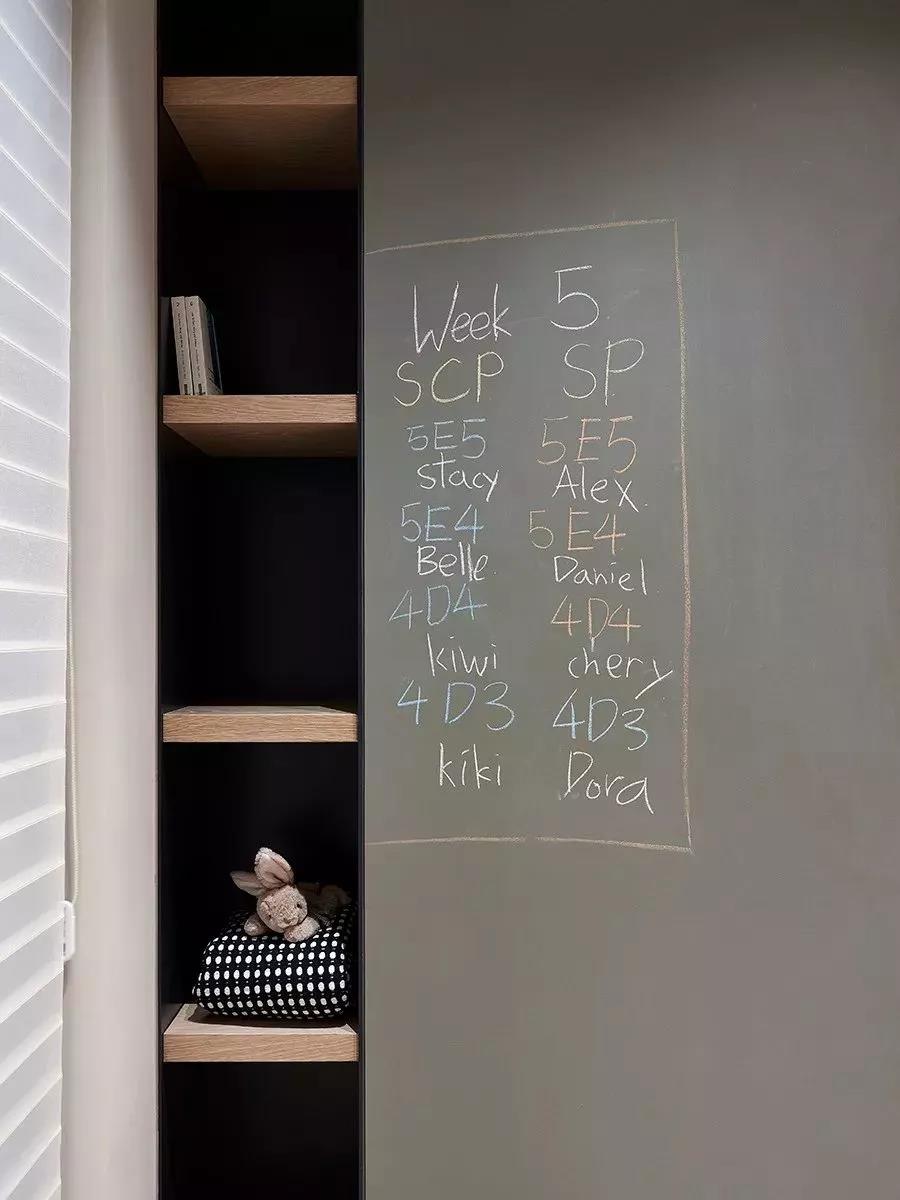 Week 5
SCP SP
5E5 5E5
Stacy Alex
5E4 5E4
Belle Daniel
4D4 4D4
kiwi chery
4D3 4D3
kiki Dora